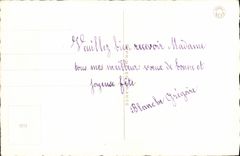 Veuillez bien recevoir Madame
tous mes meilleur voeux de bonne et
joyeuse fête
Blanche Grégoire